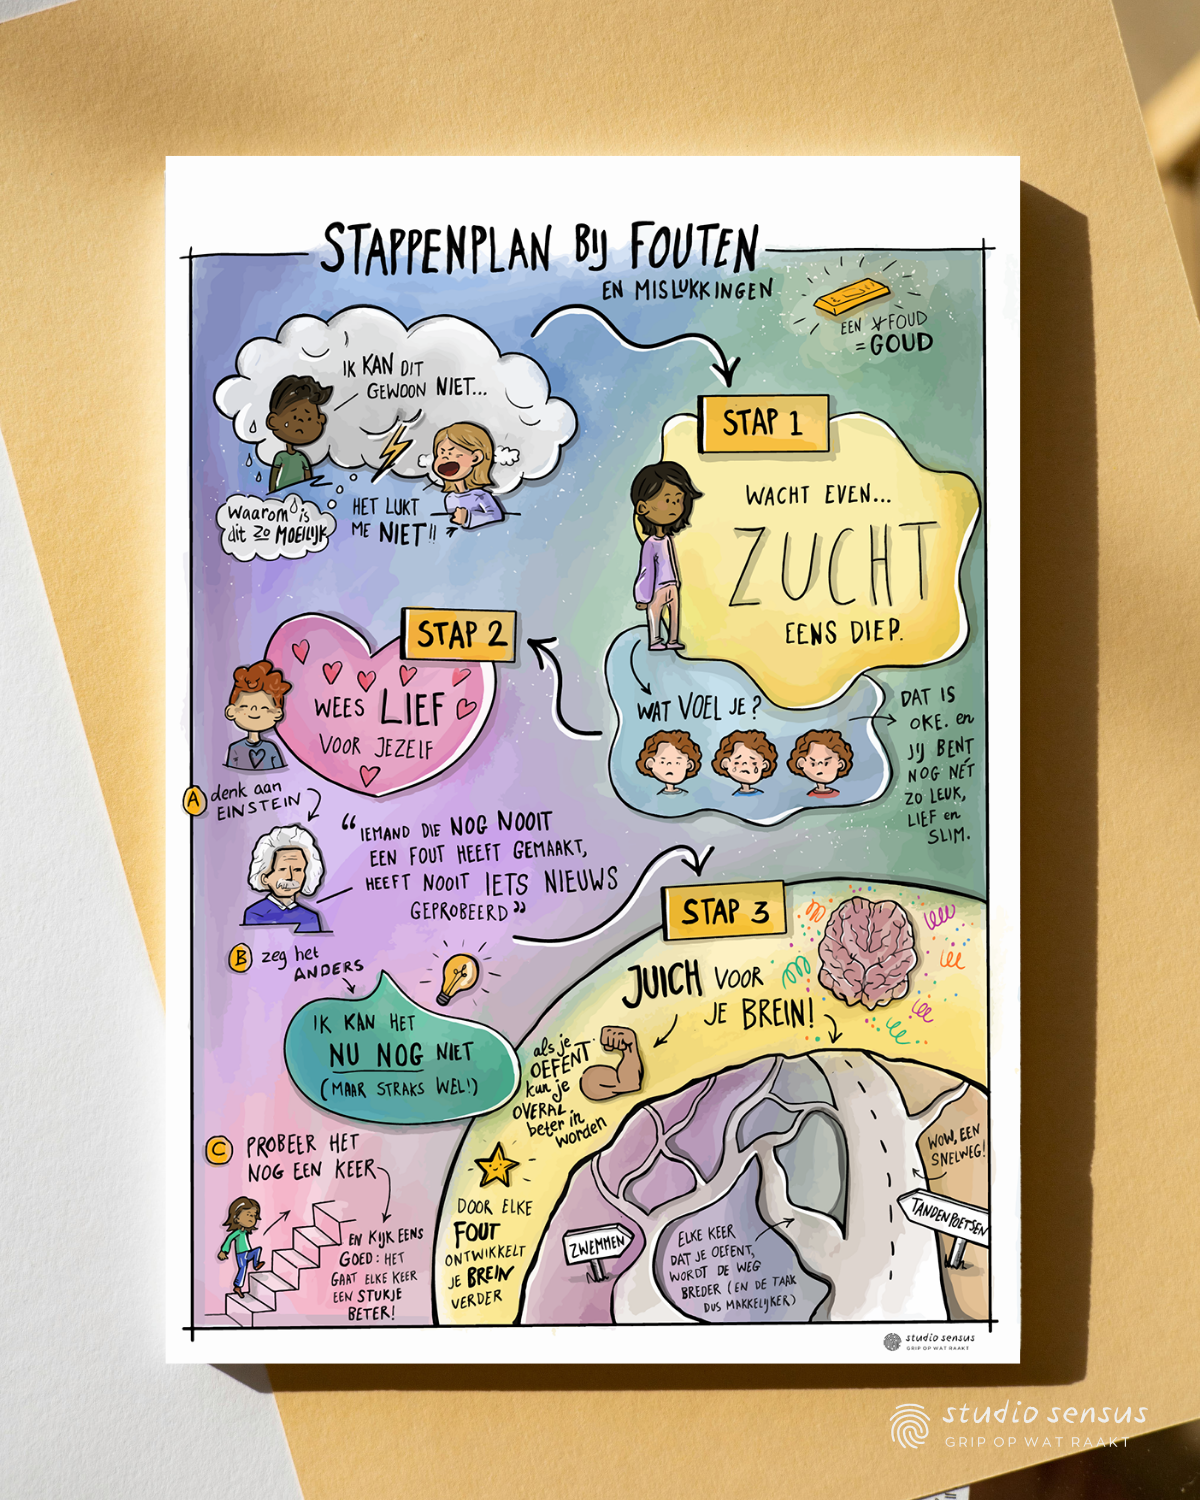 STAPPENPLAN BIJ FOUTEN
EN MISLUKKINGEN
EEN FOUD
= GOUD
IK KAN DIT
GEWOON NIET...
Waarom is
dit ZO MOEILIJK
HET LUKT
ME NIET!!
STAP 1
WACHT EVEN...
ZUCHT
EENS DIEP.
WAT VOEL JE?
DAT IS
OKE. en
JIJ BENT
NOG NÉT
ZO LEUK,
LIEF en
SLIM.
STAP 2
WEES LIEF
VOOR JEZELF
A denk aan
EINSTEIN
“IEMAND DIE NOG NOOIT
EEN FOUT HEEFT GEMAAKT,
HEEFT NOOIT IETS NIEUWS
GEPROBEERD”
B zeg het
ANDERS
IK KAN HET
NU NOG NIET
(MAAR STRAKS WEL!)
C PROBEER HET
NOG EEN KEER
EN KIJK EENS
GOED: HET
GAAT ELKE KEER
EEN STUKJE
BETER!
STAP 3
JUICH VOOR
JE BREIN!
als je
OEFENT
kun je
OVERAL
beter in
worden
DOOR ELKE
FOUT
ONTWIKKELT
JE BREIN
VERDER
ZWEMMEN
ELKE KEER
DAT JE OEFENT,
WORDT DE WEG
BREDER (EN DE TAAK
DUS MAKKELIJKER)
WOW, EEN
SNELWEG!
TANDENPOETSEN
studio sensus
GRIP OP WAT RAAKT
studio sensus
GRIP OP WAT RAAKT